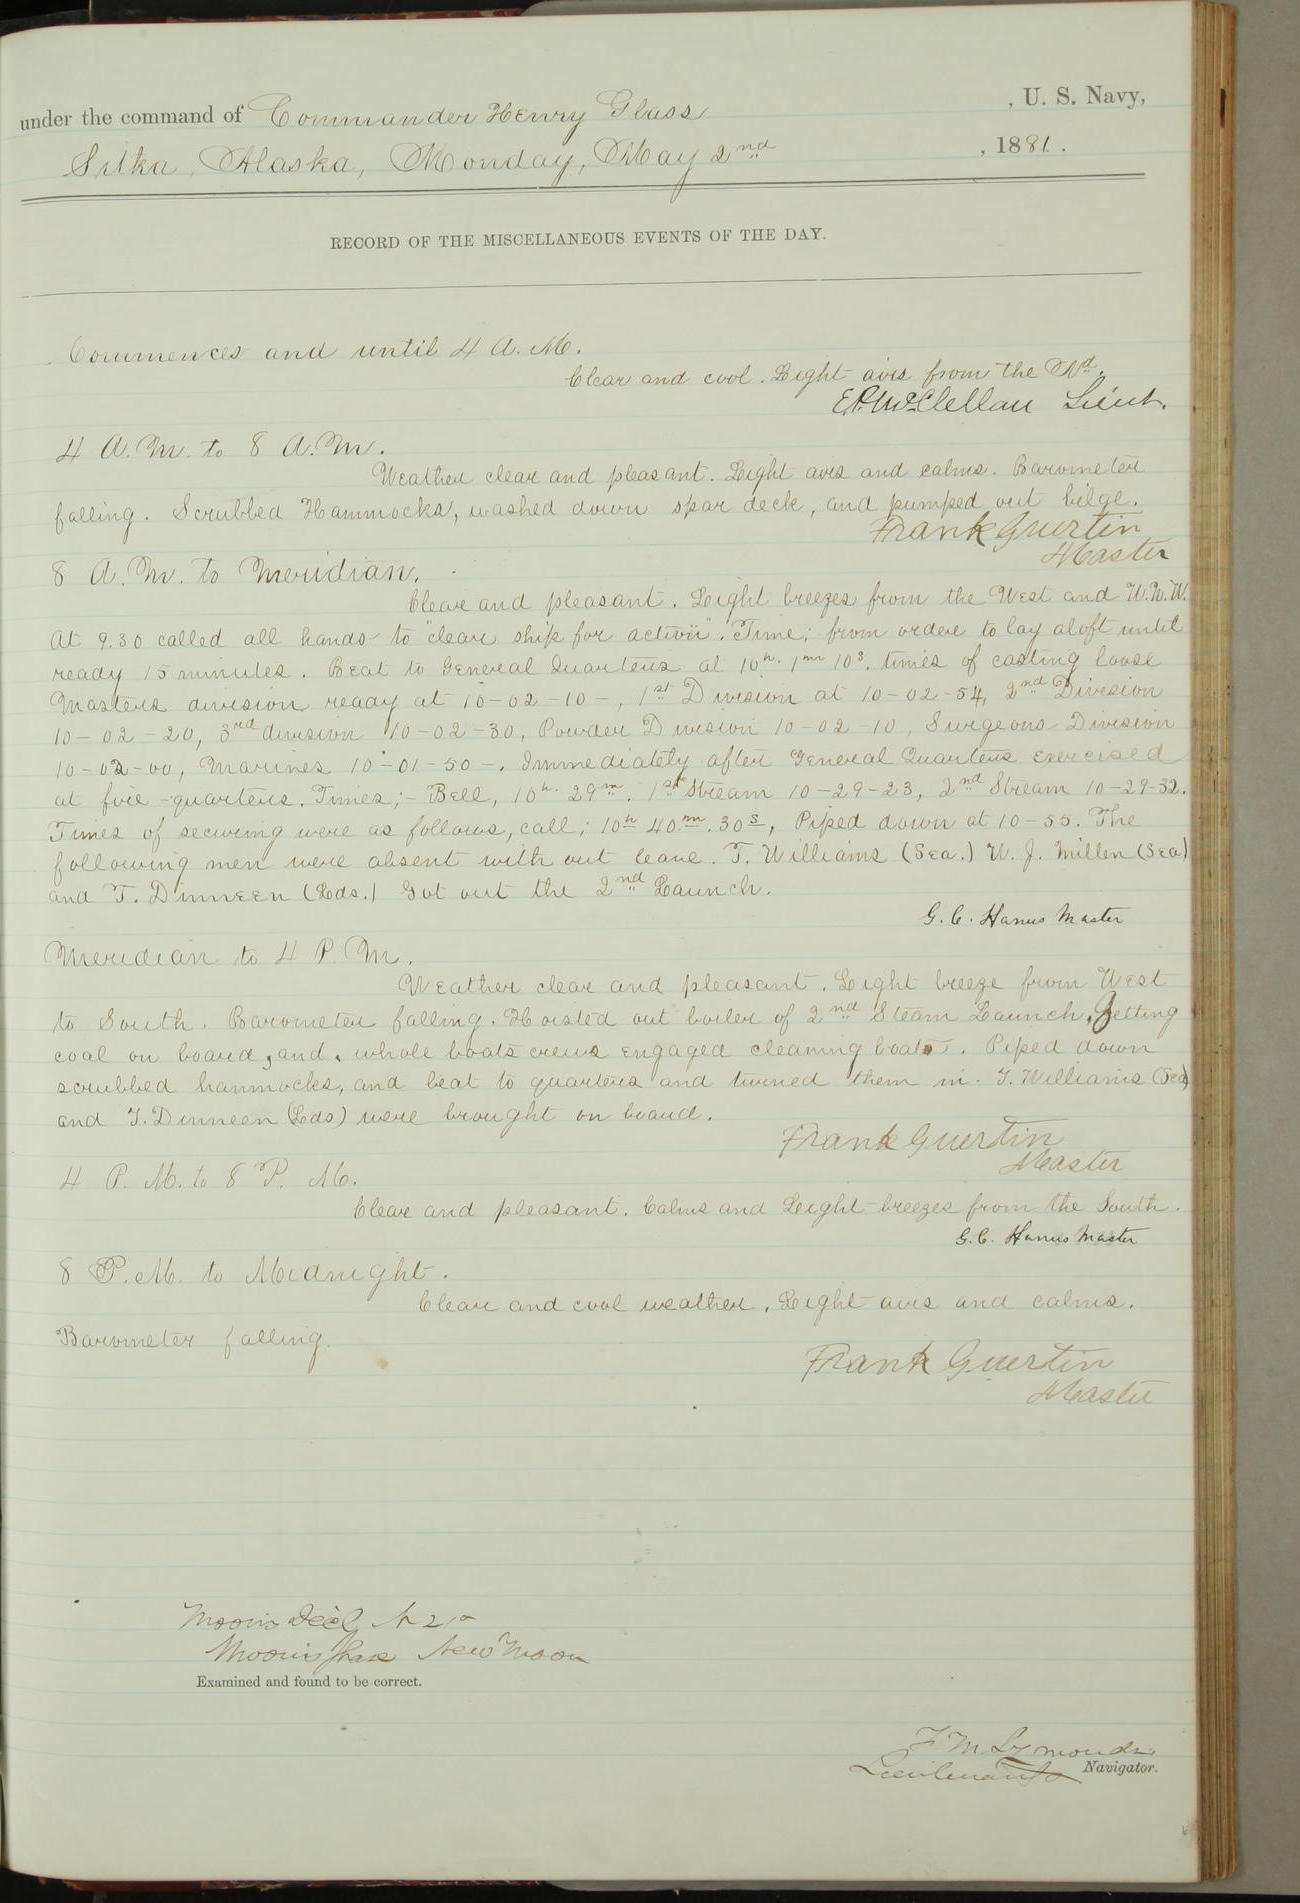 under the command of Commander Henry Glass , U. S. Navy,
Sitka, Alaska, Monday, May 2nd , 1881.
RECORD OF THE MISCELLANEOUS EVENTS OF THE DAY.
Commences and until 4 A.M.
Clear and cool. Light airs from the Nd.
E.P. McClellan Lieut.
4 A.M. to 8 A.M.
Weather clear and pleasant. Light airs and calms. Barometer
falling. Scrubbed Hammocks, washed down spar deck, and pumped out bilge.
Frank Guertin
Master
8 A.M. to Meridian.
Clear and pleasant. Light breezes from the West and W.N.W.
At 9.30 called all hands to "clear ship for action". Time; from order to lay aloft until
ready 15 minutes. Beat to General Quarters at 10h. 1m 10s. times of casting loose
Masters division ready at 10-02-10-, 1st Division at 10-02-54, 2nd Division
10-02-20, 3rd division 10-02-30, Powder Division 10-02-10, Surgeons Division
10-02-00, Marines 10-01-50-. Immediately after General Quarters exercised
at fire-quarters. Times;- Bell, 10h. 29m. 1st Stream 10-29-23, 2nd Stream 10-29-32.
Times of securing were as follows, call; 10h 40m. 30s, Piped down at 10-55. The
following men were absent with out leave. T. Williams (Sea.) W. J. Miller (Sea)
and T. Dinneen (Lds.) Got out the 2nd Launch.
G. C. Hanus Master
Meridian to 4 P.M.
Weather clear and pleasant. Light breeze from West
to South. Barometer falling. Hoisted out boiler of 2nd Steam Launch, Getting
coal on board, and, whale boats crews engaged cleaning boats. Piped down
scrubbed hammocks, and beat to quarters and turned them in. T. Williams (Sea)
and T. Dinneen (Lds) were brought on board.
Frank Guertin
Master
4 P. M. to 8 P. M.
Clear and pleasant. Calms and Light breezes from the South.
G. C. Hanus Master
8 P.M. to Midnight.
Clear and cool weather. Light airs and calms.
Barometer falling.
Frank Guertin
Master
Moon's Decl. N 21°
Moon's phase New Moon
Examined and found to be correct.
F. M. Symonds
Lieutenant Navigator.